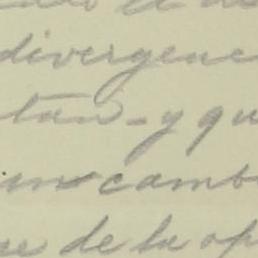 divergenc
tan - y qu
un camb
de la op